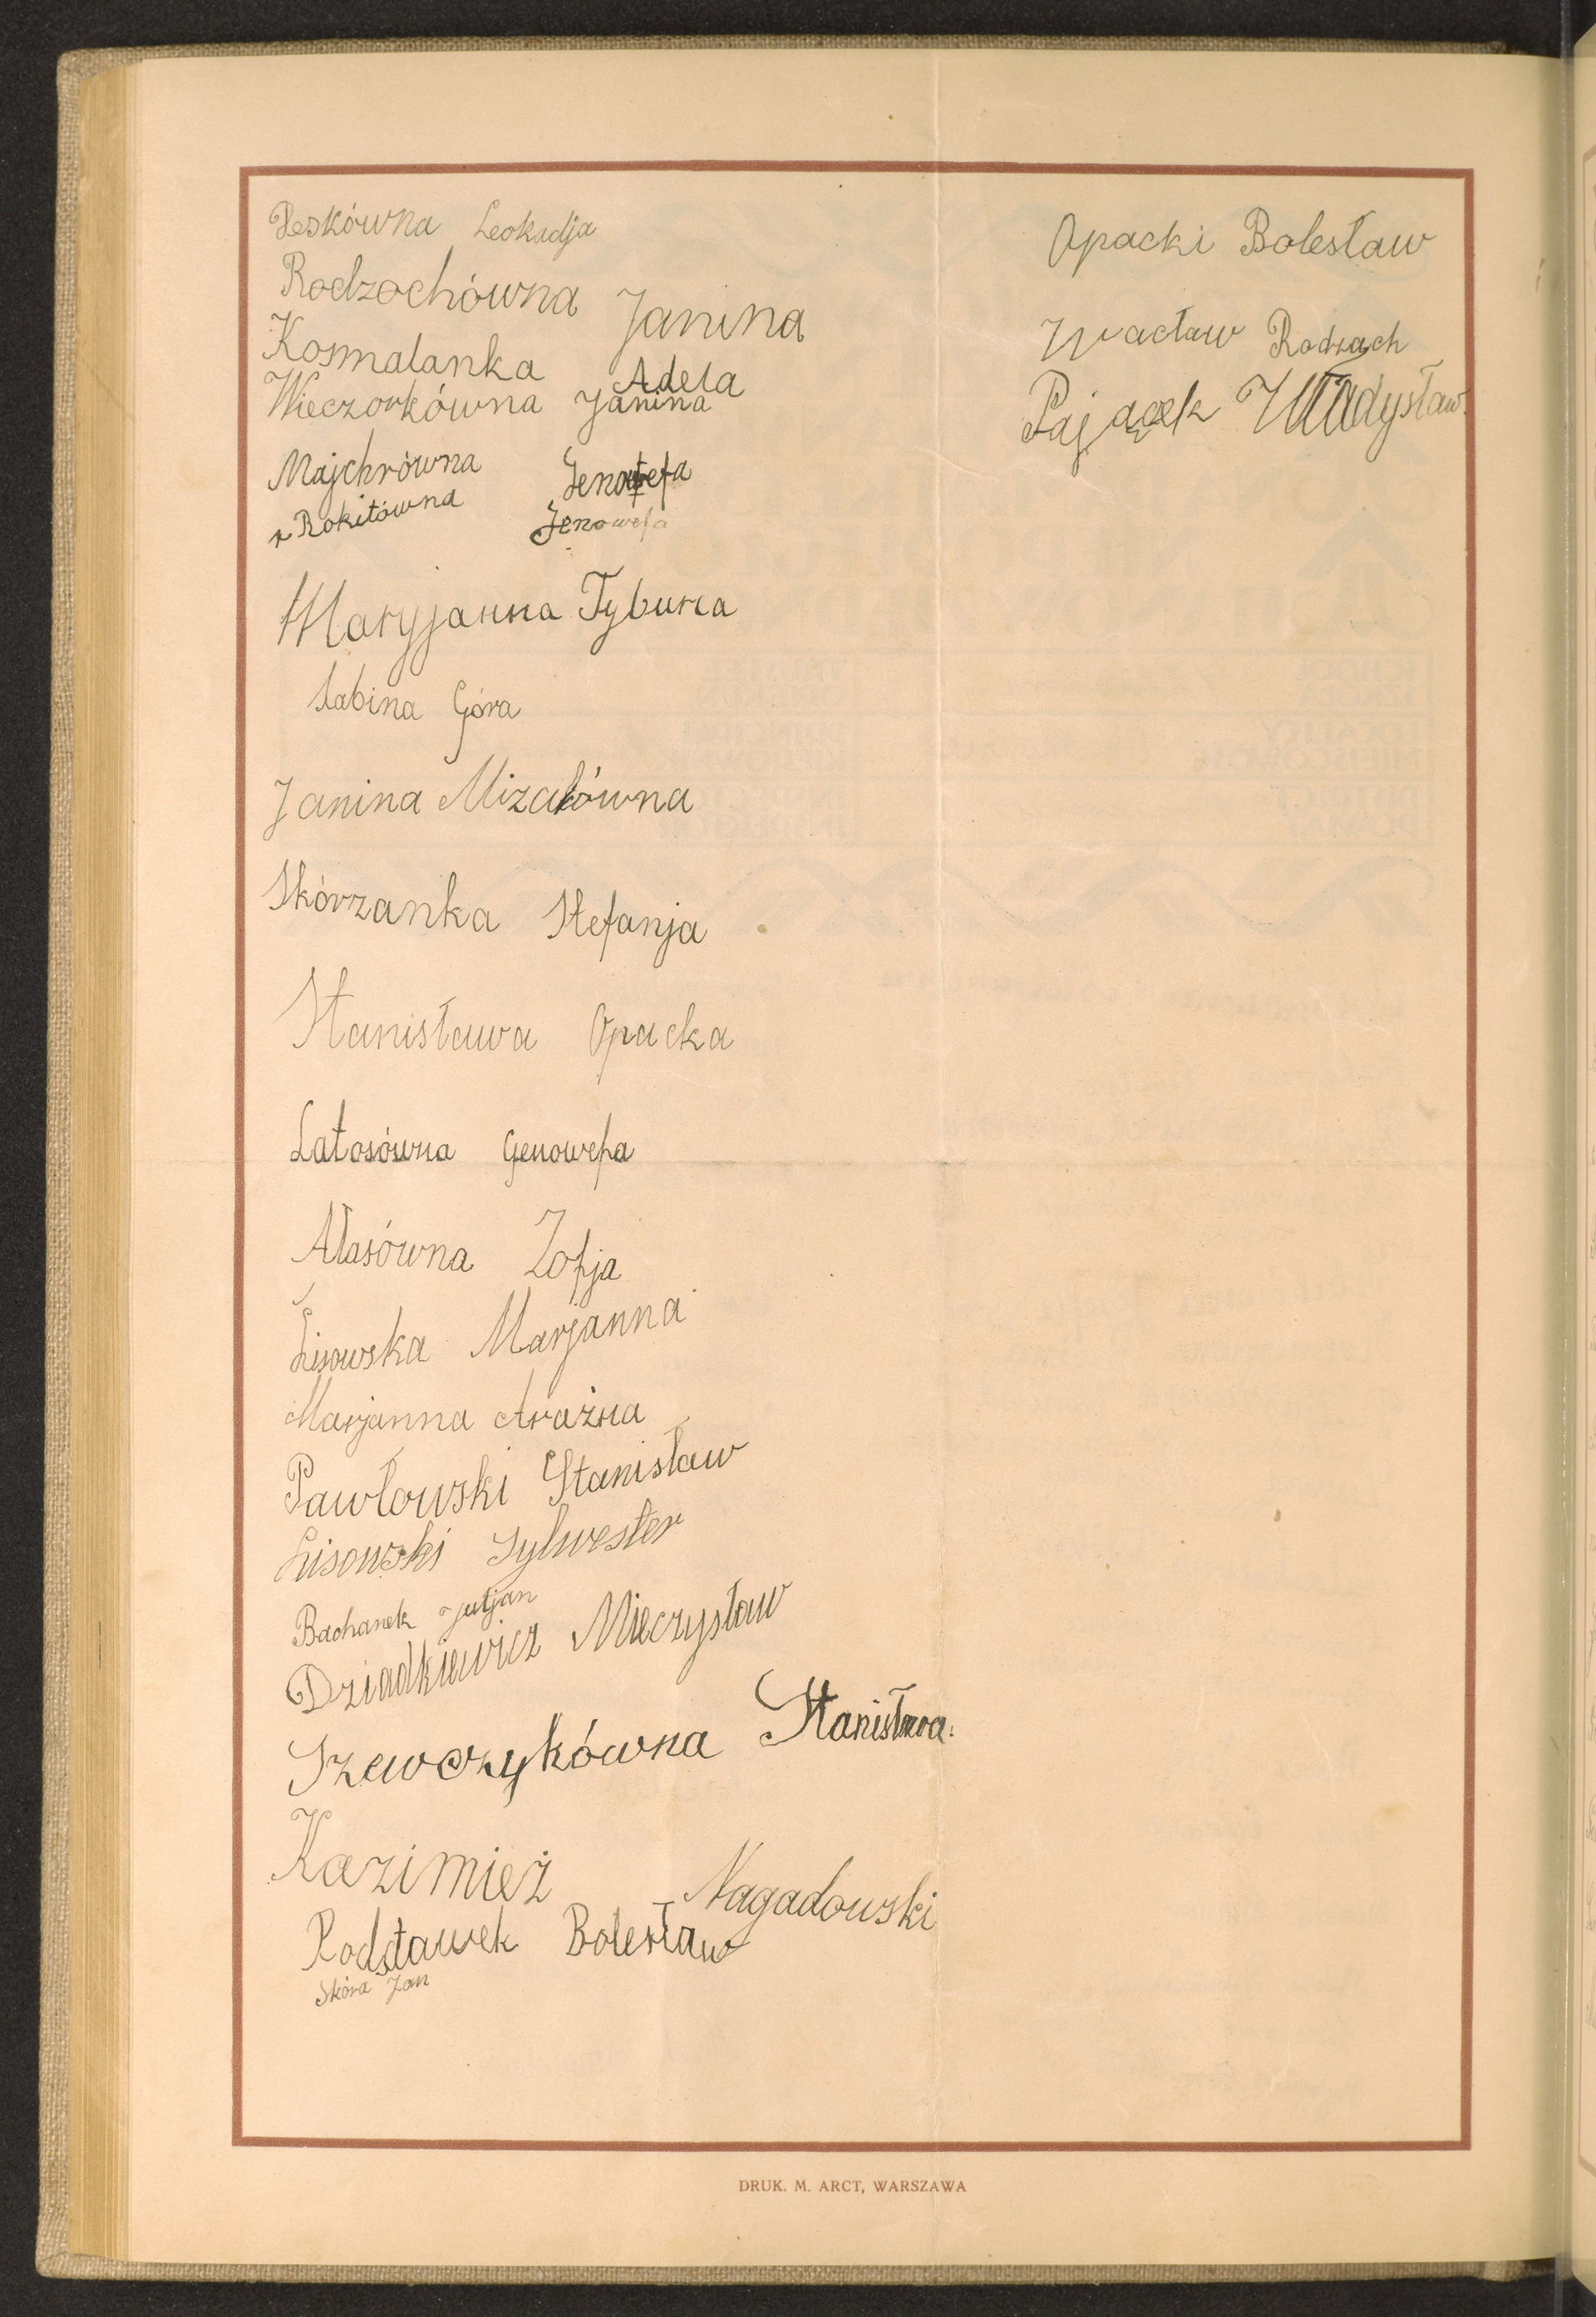 Deskówna Leokadja
Rodzochówna Janina
Kosmalanka Adela
Wieczorkówna Janina
Majchrówna Jenowefa
Rokitówna Jenowefa
Maryjanna Tybura
Sabina Góra
Janina Mizakówna
Skórzanka Stefanja
Stanisława Opacka
Latosówna Genowefa
Atasówna Zofja
Lisowska Marjanna
Marjanna
Pawłowski Stanisław
Lisowski Sylwester
Bachanek Juljan
Dziadkiewicz Mieczysław
Szewczykówna Stanisława.
Kazimież Nagadowski
Podstawek Bolesław
Skóra Jan
Opacki Bolesław
Wacław Rodzach
Pajączek Władysław
DRUK. M. ARCT, WARSZAWA